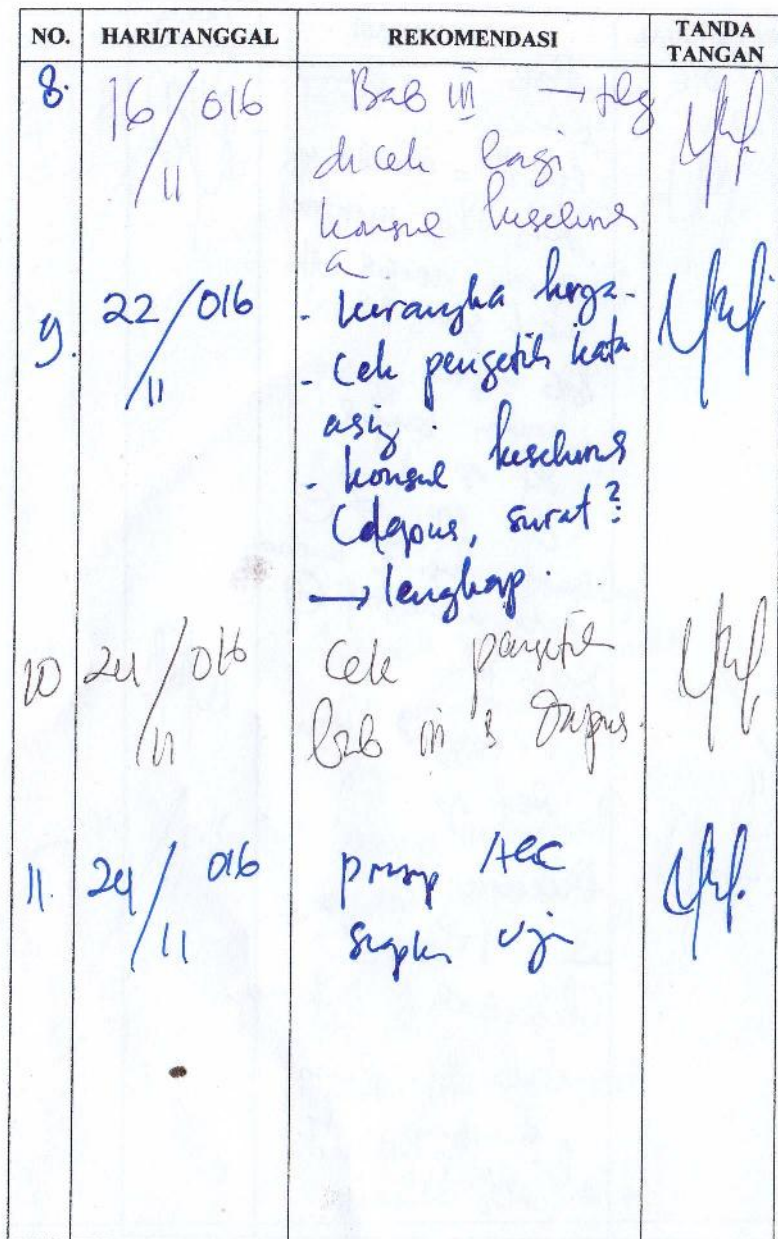 NO. HARI/TANGGAL REKOMENDASI TANDA TANGAN
8. 16/016 Bab III → tlg
11 dicek lagi
konsul keseluruh
a
9. 22/016 - kerangka kerja.
11 - Cek pengetik kata
asig.
- konsul keseluruh
(dapus, surat?
→ lengkap.
10 24/016 Cek pengetik
11 bab III & Dapus.
11. 24/016 prinsip Acc
11 siapkn uji